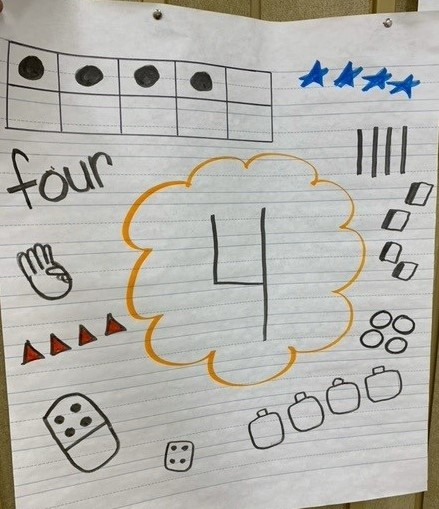 four
4